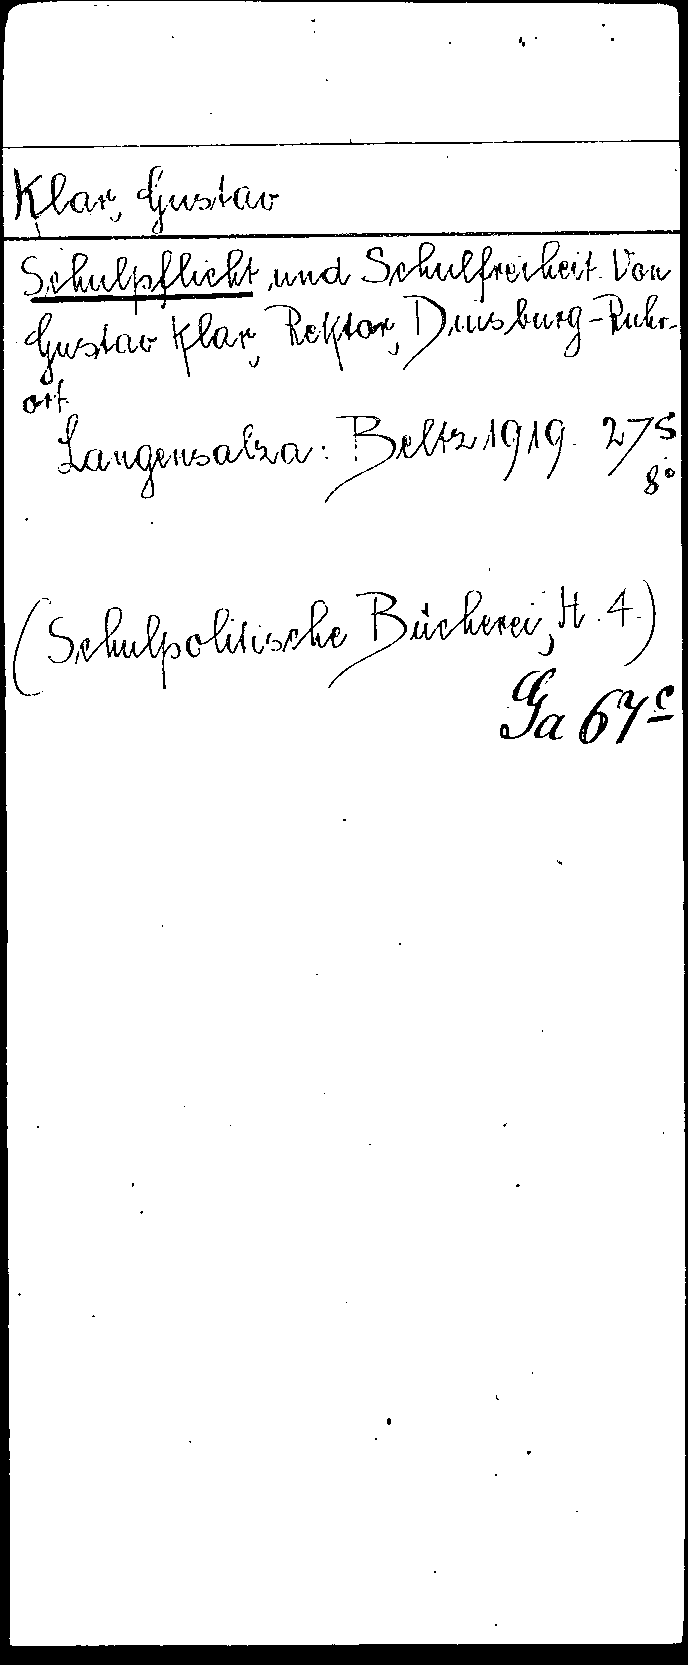 Klar, Gustav
Schulpflicht und Schulfreiheit. Von
Gustav Klar, Rektor, Duisburg-Ruhr-
ort.
Langensalza: Beltz 1919. 27 S
8°
(Schulpolitische Bücherei, H. 4.)
Ga 67c